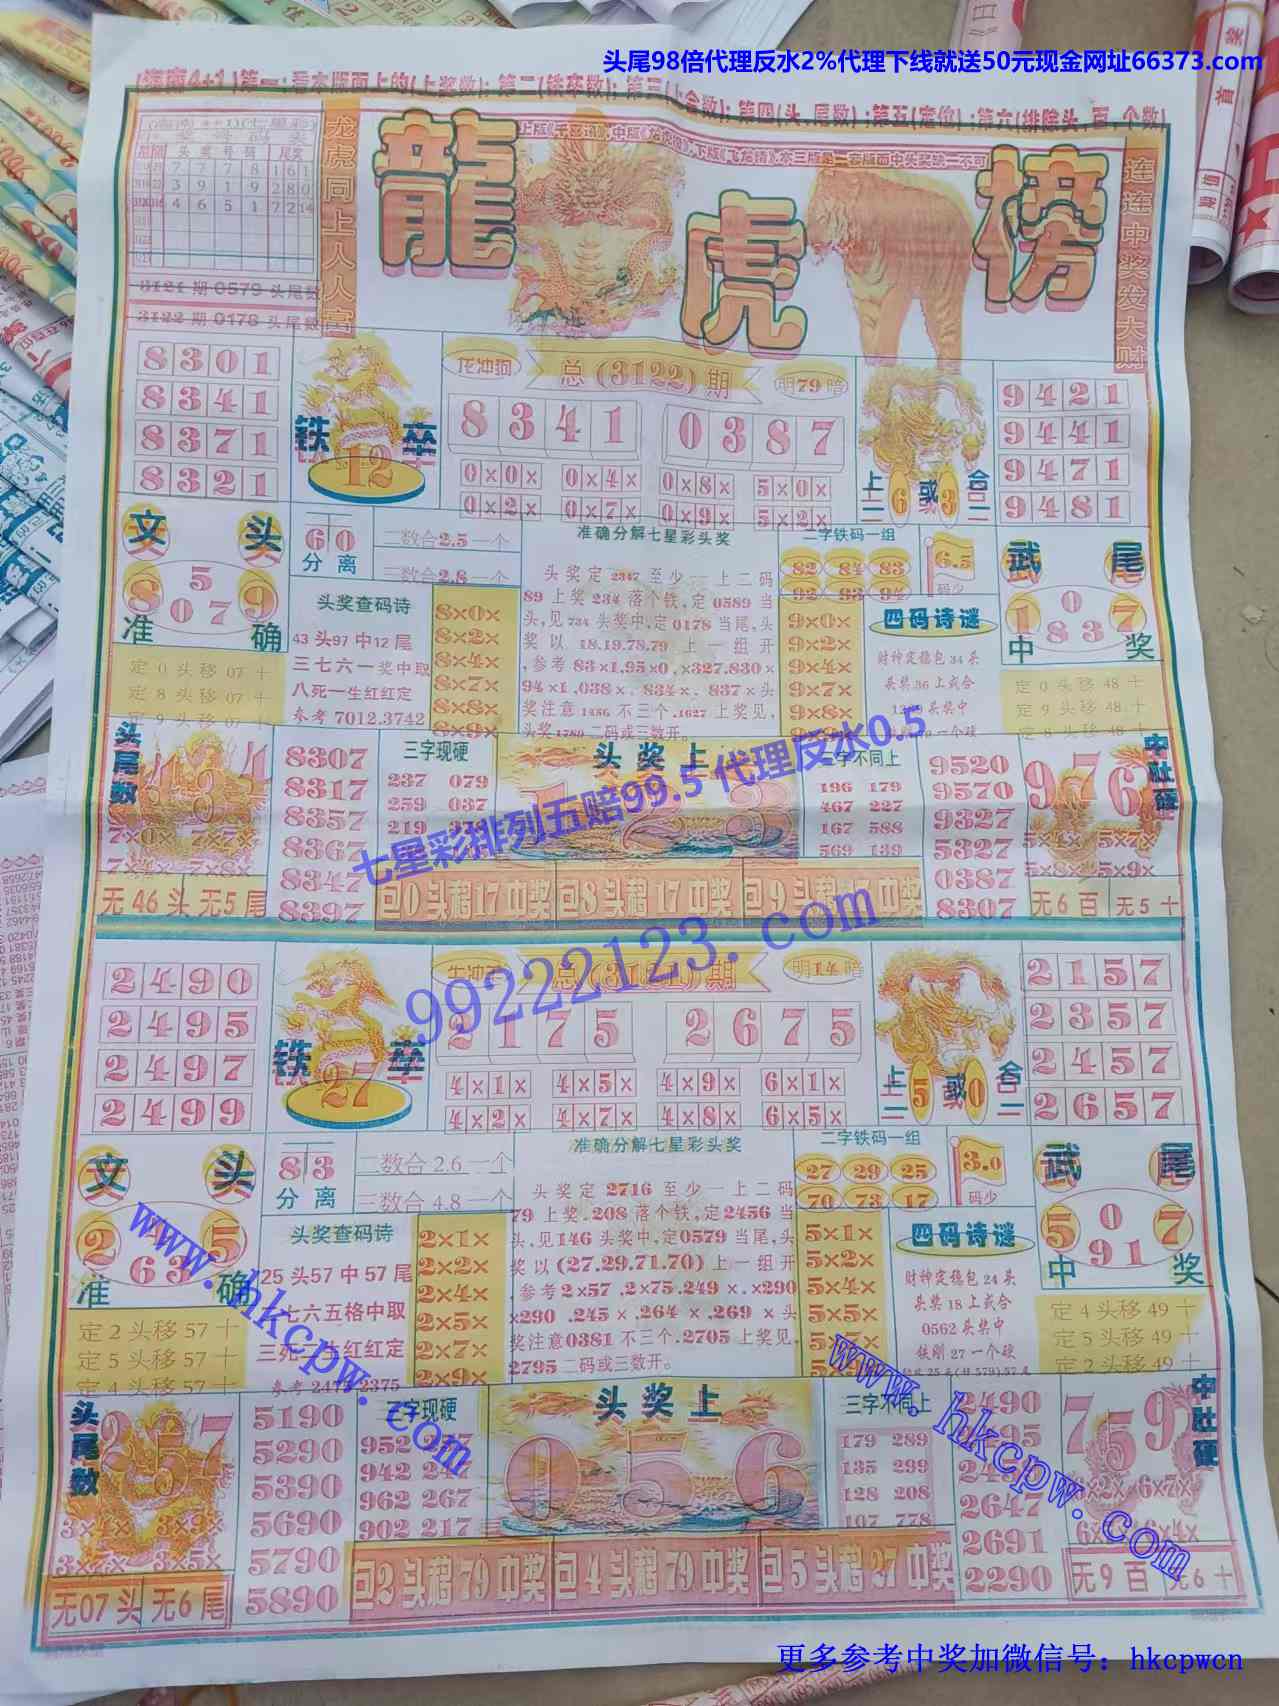 头尾98倍代理反水2%代理下线就送50元现金网址66373.com
龙虎同上人人富
龍虎榜
连连中奖发大财
3121期0579头尾数
3122期0178头尾数
8301
8341
8371
8321
铁卒
12
龙冲狗
总(3122)期
明79暗
8341 0387
0×0× 0×4× 0×8× 5×0×
0×2× 0×7× 0×9× 5×2×
上二6或3合二
9421
9441
9471
9481
文头
5
8079
准确
定0头移07十
定8头移07十
定9头移07十
60
分离
二数合2.5一个
三数合2.8一个
头奖查码诗
43头97中12尾
三七六一奖中取
八死一生红红定
参考7012.3742
8×0×
8×2×
8×4×
8×7×
8×8×
6×9×
准确分解七星彩头奖
头奖定2347至少一上二码
89上奖234落个铁,定0589当
头,见734头奖中,定0178当尾,头
奖以18.19.78.79上一组开
,参考83×1.95×0,×327.830×
94×1,038×.834×.837×头
奖注意1486不三个.1627上奖见,
头奖1780二码或三数开。
二字铁码一组
82 84 83
92 93 94
6.5
码少
9×0×
9×2×
9×4×
9×7×
9×8×
四码诗谜
财神定稳包34头
头奖36上或合
武尾
0
1837
中奖
定0头移48十
定9头移48十
定8头移48十
头尾数
无46头 无5尾
8307
8317
8357
8367
8347
8397
三字现硬
237 079
259 037
头奖上
三字不同上
196 179
467 227
167 588
569 139
9520
9570
9327
5327
0387
8307
976
中肚硬
5×4× 5×7×
5×8× 5×9×
无6百 无5十
包0头稳17中奖 包8头稳17中奖
七星彩排列五赔99.5代理反水0.5
99222123.com
2490
2495
2497
2499
铁卒
27
总(3121)期
明14暗
2175 2675
4×1× 4×5× 4×9× 6×1×
4×2× 4×7× 4×8× 6×5×
上二5或0合二
2157
2357
2457
2657
文头
25
63
准确
定2头移57十
定5头移57十
定4头移57十
83
分离
二数合2.6一个
三数合4.8一个
头奖查码诗
25头57中57尾
七六五格中取
2×1×
2×2×
2×4×
2×5×
2×7×
2×9×
准确分解七星彩头奖
头奖定2716至少一上二码
79上奖.208落个铁,定2456当
头,见146头奖中,定0579当尾,头
奖以(27.29.71.70)上一组开
,参考2×57,2×75.249×.×290
×290.245×.264×.269×头
奖注意0381不三个.2705上奖见,
2795二码或三数开。
二字铁码一组
27 29 25
70 73 17
3.0
码少
5×1×
5×2×
5×4×
5×5×
四码诗谜
财神定稳包24头
头奖18上或合
0562头奖中
铁刚27一个硬
武尾
0
5917
中奖
定4头移49十
定5头移49十
定2头移49十
头尾数
957
3×4× 3×9×
3×7× 3×5×
无07头 无6尾
5190
5290
5390
5690
5790
5890
三字现硬
942 247
962 267
902 217
头奖上
056
三字不同上
179 289
135 299
128 208
107 778
2490
2647
2691
2290
759
中肚硬
无9百 无6十
包2头稳79中奖 包4头稳79中奖 包5头稳27中奖
www.hkcpw.com
www.hkcpw.com
更多参考中奖加微信号：hkcpwcn